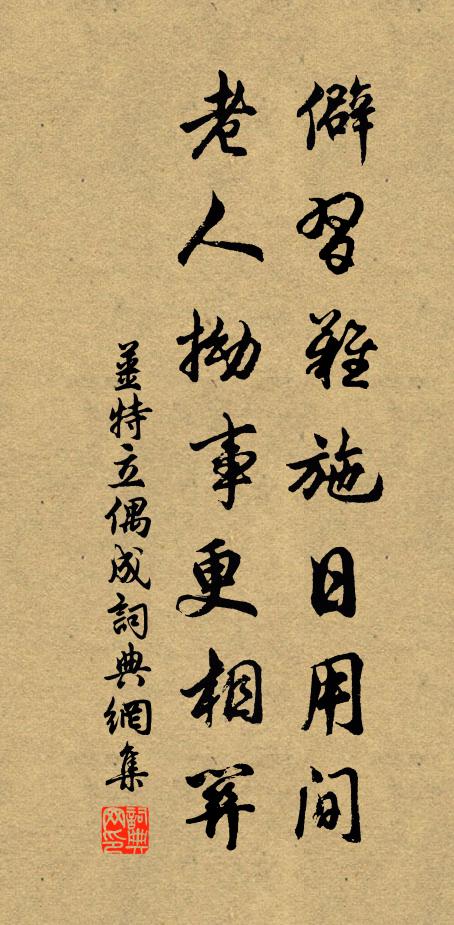 僻習難施日用間
老人拗事更相關
薑特立偶成詞典網集
詞典网印